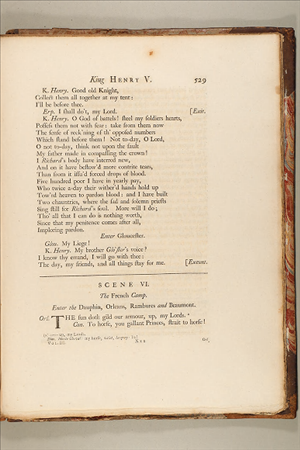 King HENRY V. 529
K. Henry. Good old Knight,
Collect them all together at my tent:
I'll be before thee.
Erp. I shall do't, my Lord. [Exit.
K. Henry. O God of battels! steel my soldiers hearts,
Possess them not with fear: take from them now
The sense of reck'ning of th' opposed numbers
Which stand before them! Not to-day, O Lord,
O not to-day, think not upon the fault
My father made in compassing the crown!
I Richard's body have interred new,
And on it have bestow'd more contrite tears,
Than from it issu'd forced drops of blood.
Five hundred poor I have in yearly pay,
Who twice a-day their wither'd hands hold up
Tow'rd heaven to pardon blood: and I have built
Two chauntries, where the sad and solemn priests
Sing still for Richard's soul. More will I do;
Tho' all that I can do is nothing worth,
Since that my penitence comes after all,
Imploring pardon.
Enter Gloucester.
Glou. My Liege!
K. Henry. My brother Glo'ster's voice?
I know thy errand, I will go with thee:
The day, my friends, and all things stay for me. [Exeunt.
SCENE VI.
The French Camp.
Enter the Dauphin, Orleans, Rambures and Beaumont.
Orl. THE sun doth gild our armour, up, my Lords.
Con. To horse, you gallant Princes, strait to horse!
VOL. III. Xxx